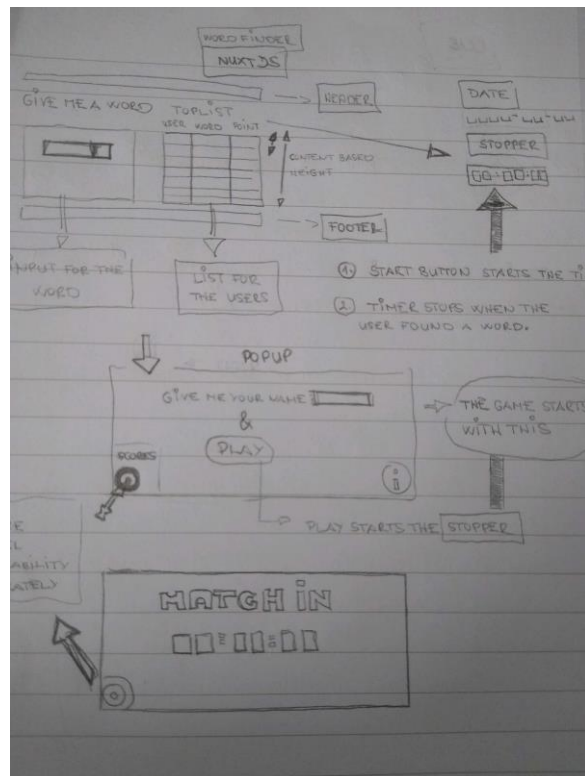 WORD FINDER
NUXTJS
HEADER
DATE
GIVE ME A WORD
TOPLIST
USER WORD POINT
STOPPER
CONTENT BASED
HEIGHT
FOOTER
INPUT FOR THE
WORD
LIST FOR
THE USERS
1. START BUTTON STARTS THE TI
2. TIMER STOPS WHEN THE
USER FOUND A WORD.
POPUP
GIVE ME YOUR NAME
&
PLAY
SCORES
i
THE GAME STARTS
WITH THIS
PLAY STARTS THE STOPPER
ABILITY
ATELY
MATCH IN